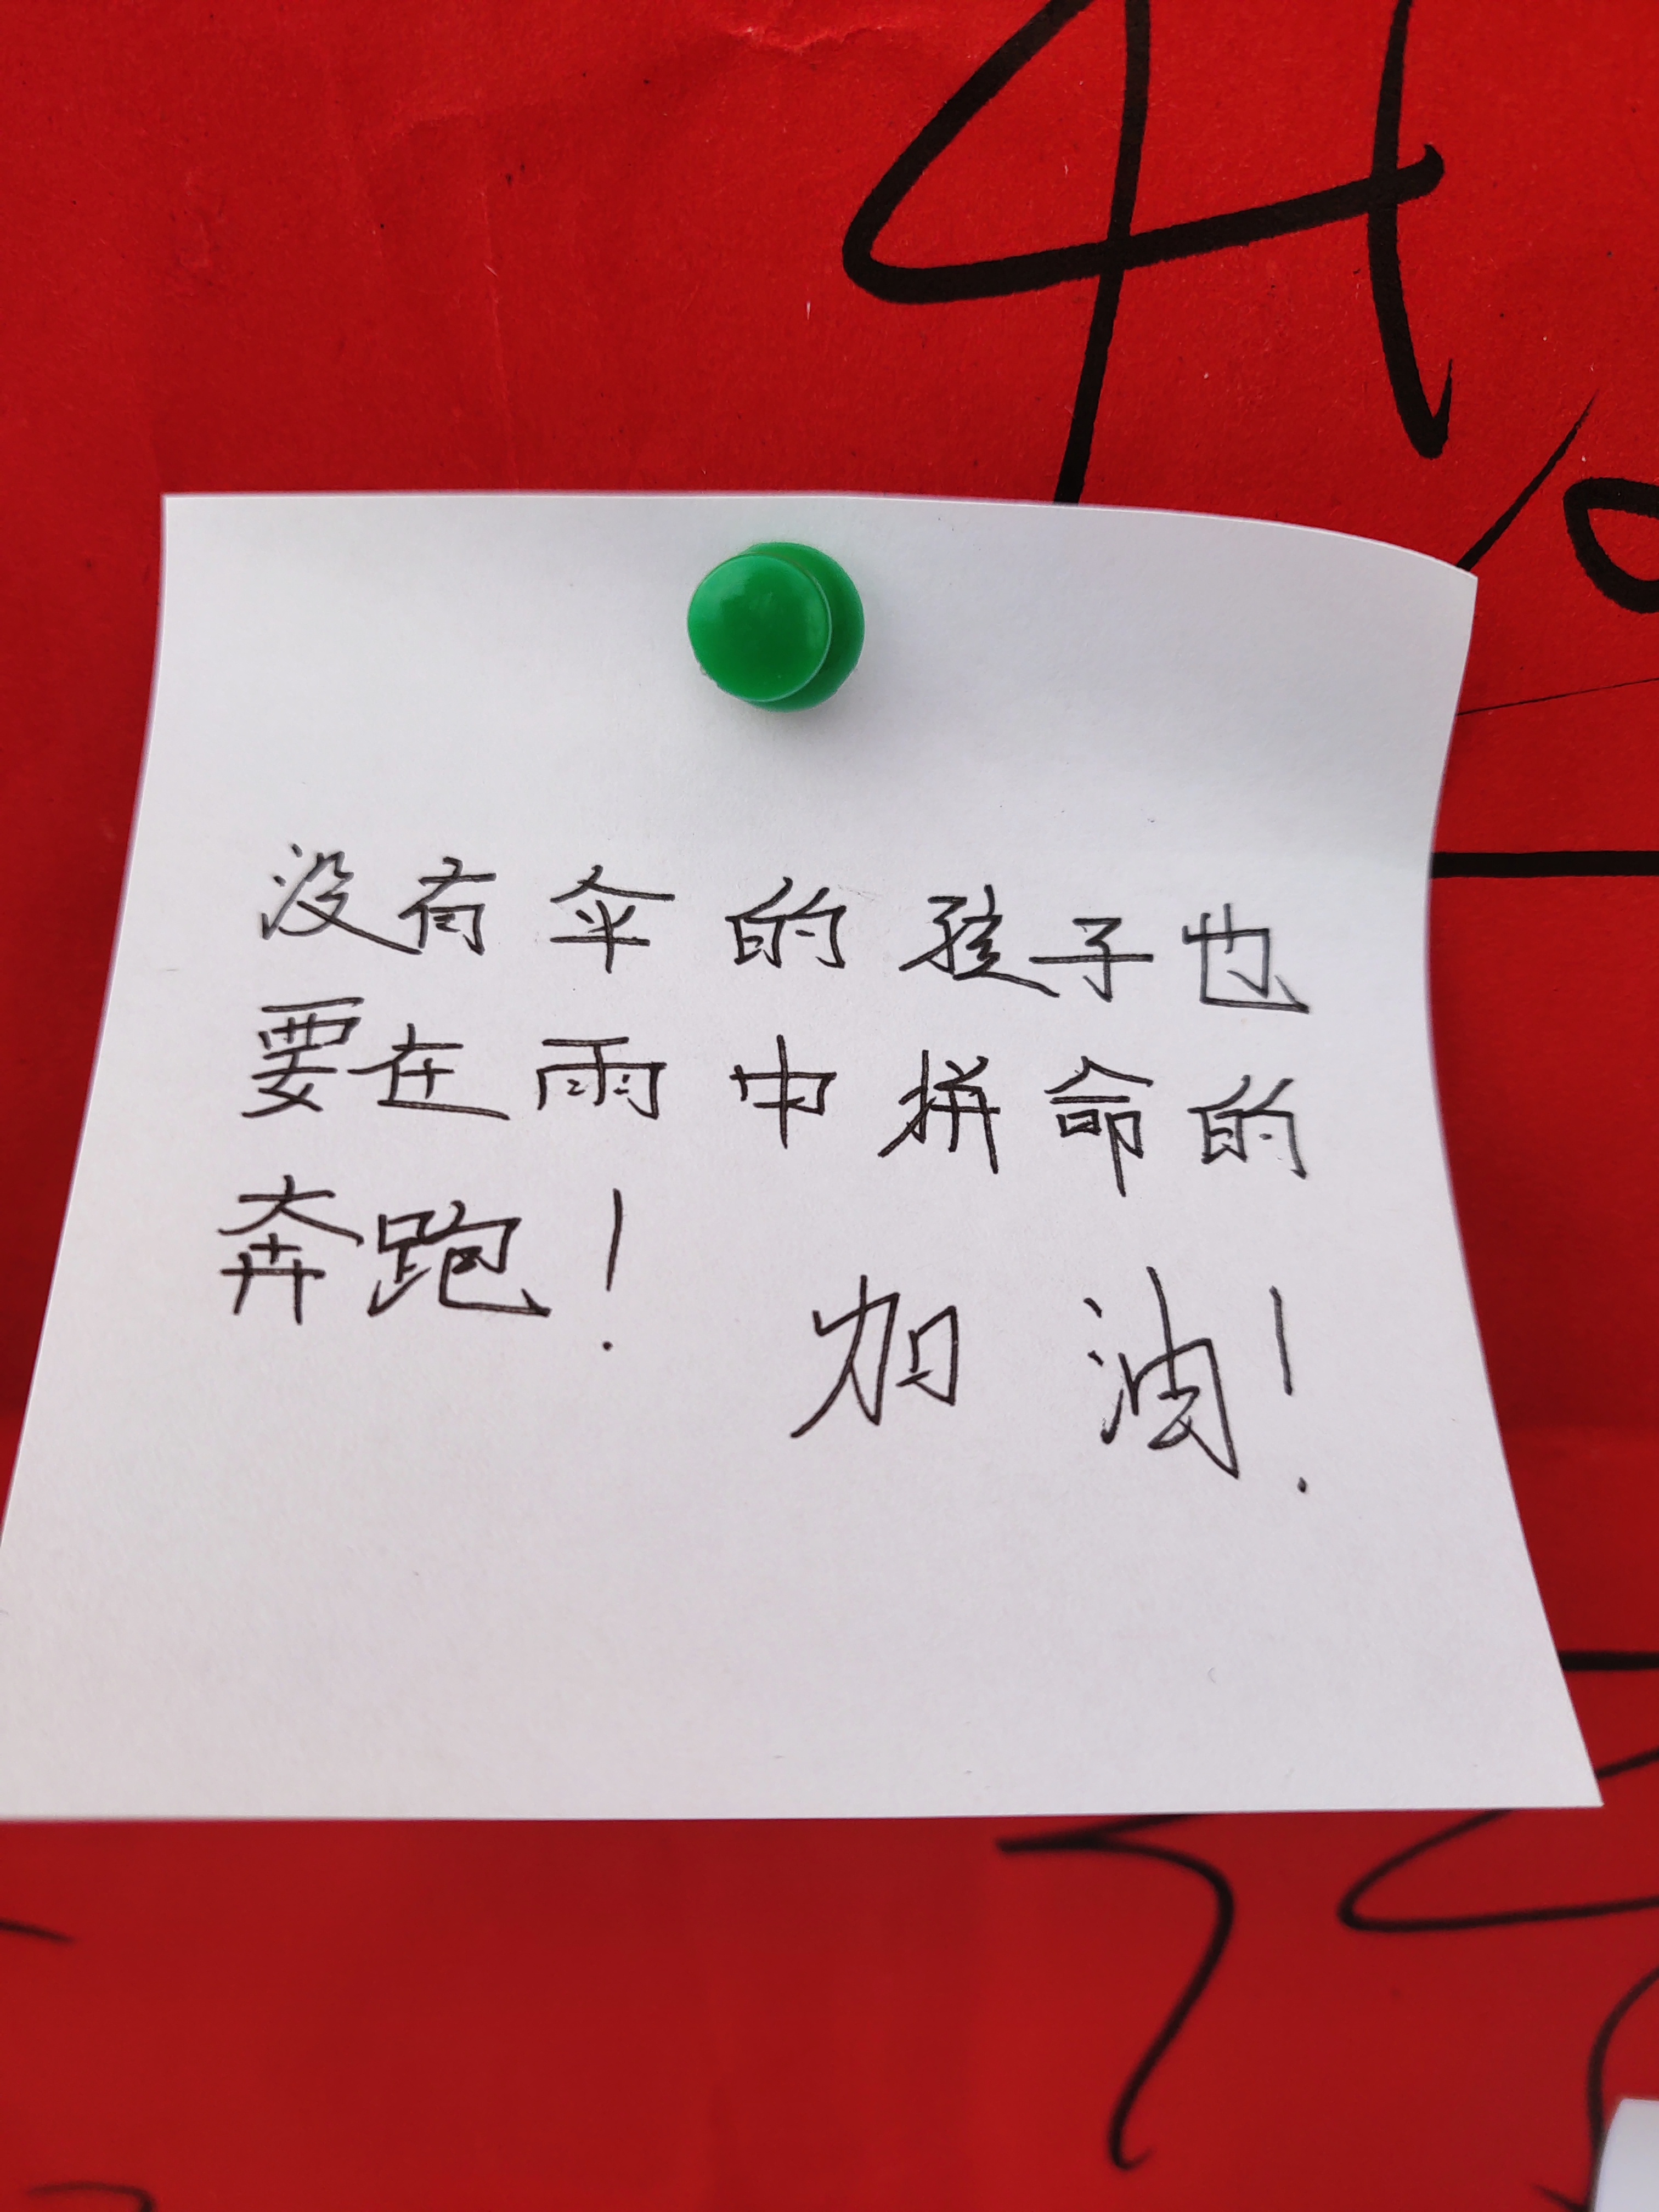 没有伞的孩子也
要在雨中拼命的
奔跑!
加油!